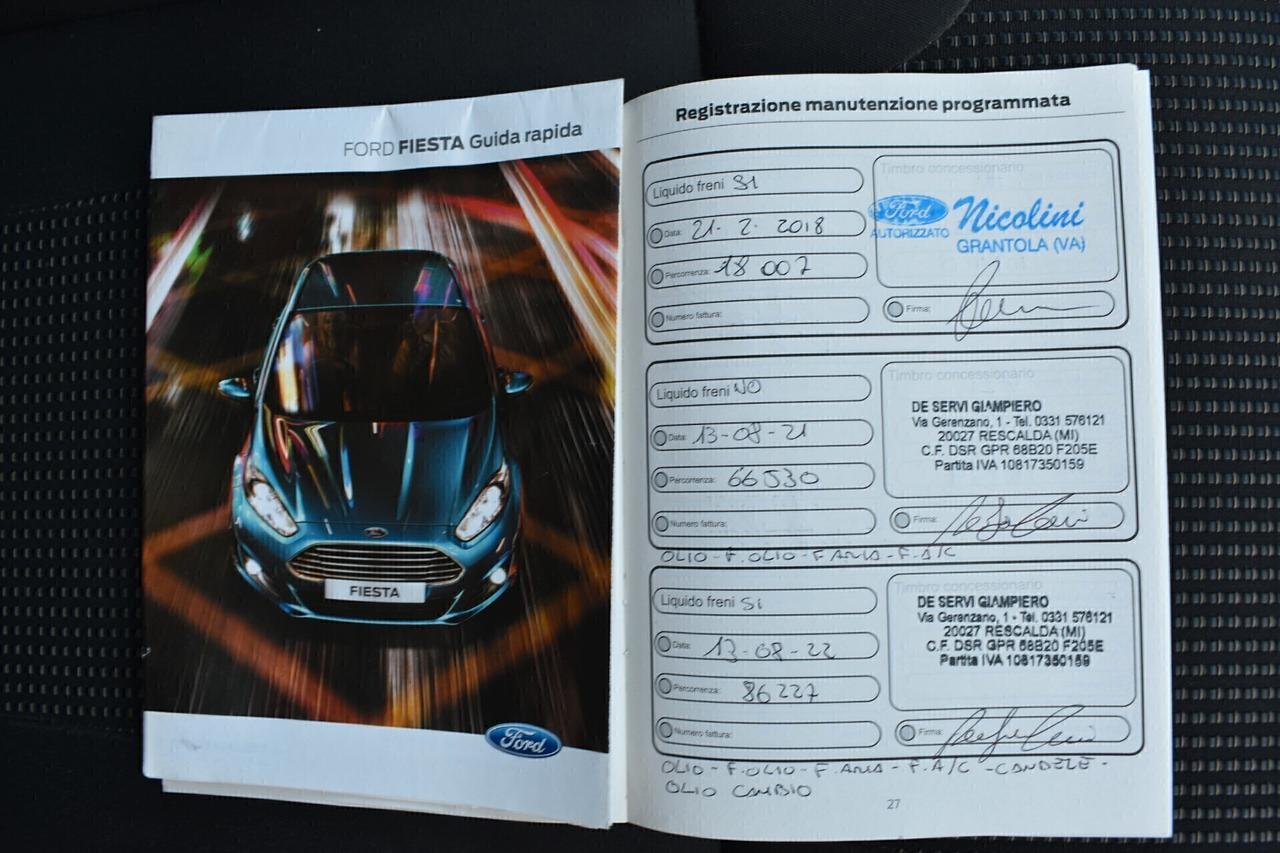 FORD FIESTA Guida rapida
FIESTA
Ford
Registrazione manutenzione programmata
Liquido freni SI
Data: 21. 2. 2018
Percorrenza: 18 007
Numero fattura:
Timbro concessionario
Ford Nicolini
AUTORIZZATO
GRANTOLA (VA)
Firma:
Liquido freni NO
Data: 13-08-21
Percorrenza: 66530
Numero fattura:
Timbro concessionario
DE SERVI GIAMPIERO
Via Gerenzano, 1 - Tel. 0331 576121
20027 RESCALDA (MI)
C.F. DSR GPR 68B20 F205E
Partita IVA 10817350159
Firma:
OLIO - F. OLIO - F ARIA - F. A/C
Liquido freni Si
Data: 13-08-22
Percorrenza: 86227
Numero fattura:
Timbro concessionario
DE SERVI GIAMPIERO
Via Gerenzano, 1 - Tel. 0331 576121
20027 RESCALDA (MI)
C.F. DSR GPR 68B20 F205E
Partita IVA 10817350159
Firma:
OLIO - F. OLIO - F. ARIA - F. A/C - CANDELE -
OLIO CAMBIO
27